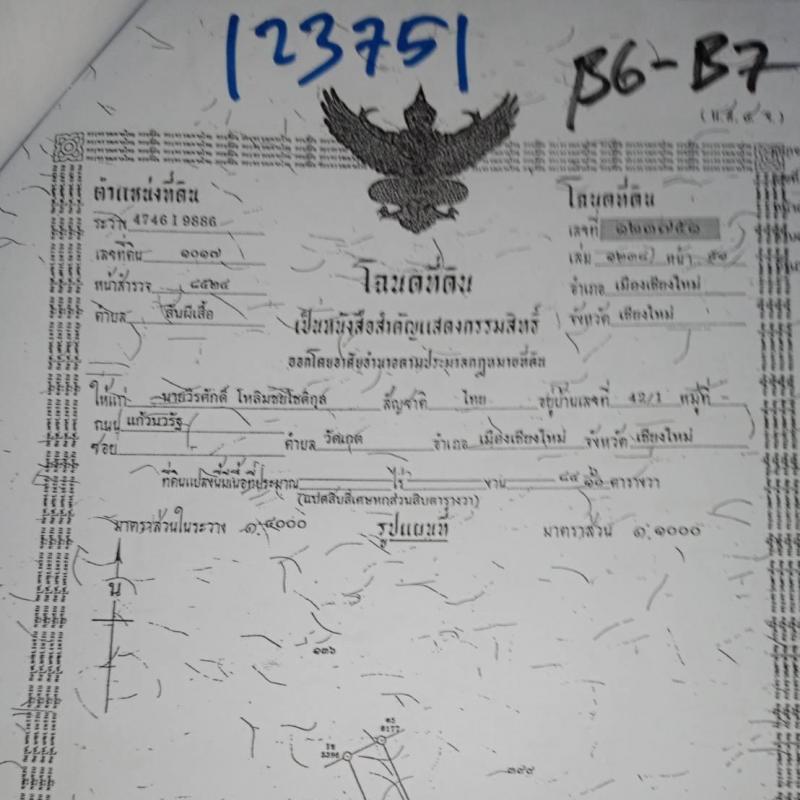 123751
B6-B7
(น.ส. ๔ จ.)
ตำแหน่งที่ดิน
ระวาง 4746 I 9886
เลขที่ดิน ๑๐๑๗
หน้าสำรวจ ๘๕๒๔
ตำบล สันผีเสื้อ
โฉนดที่ดิน
เลขที่ ๑๒๓๗๕๑
เล่ม หน้า ๕๑
อำเภอ เมืองเชียงใหม่
จังหวัด เชียงใหม่
โฉนดที่ดิน
เป็นหนังสือสำคัญแสดงกรรมสิทธิ์
ออกโดยอาศัยอำนาจตามประมวลกฎหมายที่ดิน
ให้แก่ นายวีรศักดิ์ โหลิมชยโชติกุล สัญชาติ ไทย อยู่บ้านเลขที่ 42/1 หมู่ที่ -
ถนน แก้วนวรัฐ
ซอย - ตำบล วัดเกต อำเภอ เมืองเชียงใหม่ จังหวัด เชียงใหม่
ที่ดินแปลงนี้มีเนื้อที่ประมาณ ไร่ งาน ตารางวา
(แปดสิบสี่เศษหกส่วนสิบตารางวา)
มาตราส่วนในระวาง ๑:๔๐๐๐ รูปแผนที่ มาตราส่วน ๑:๑๐๐๐
น
๑๓๖